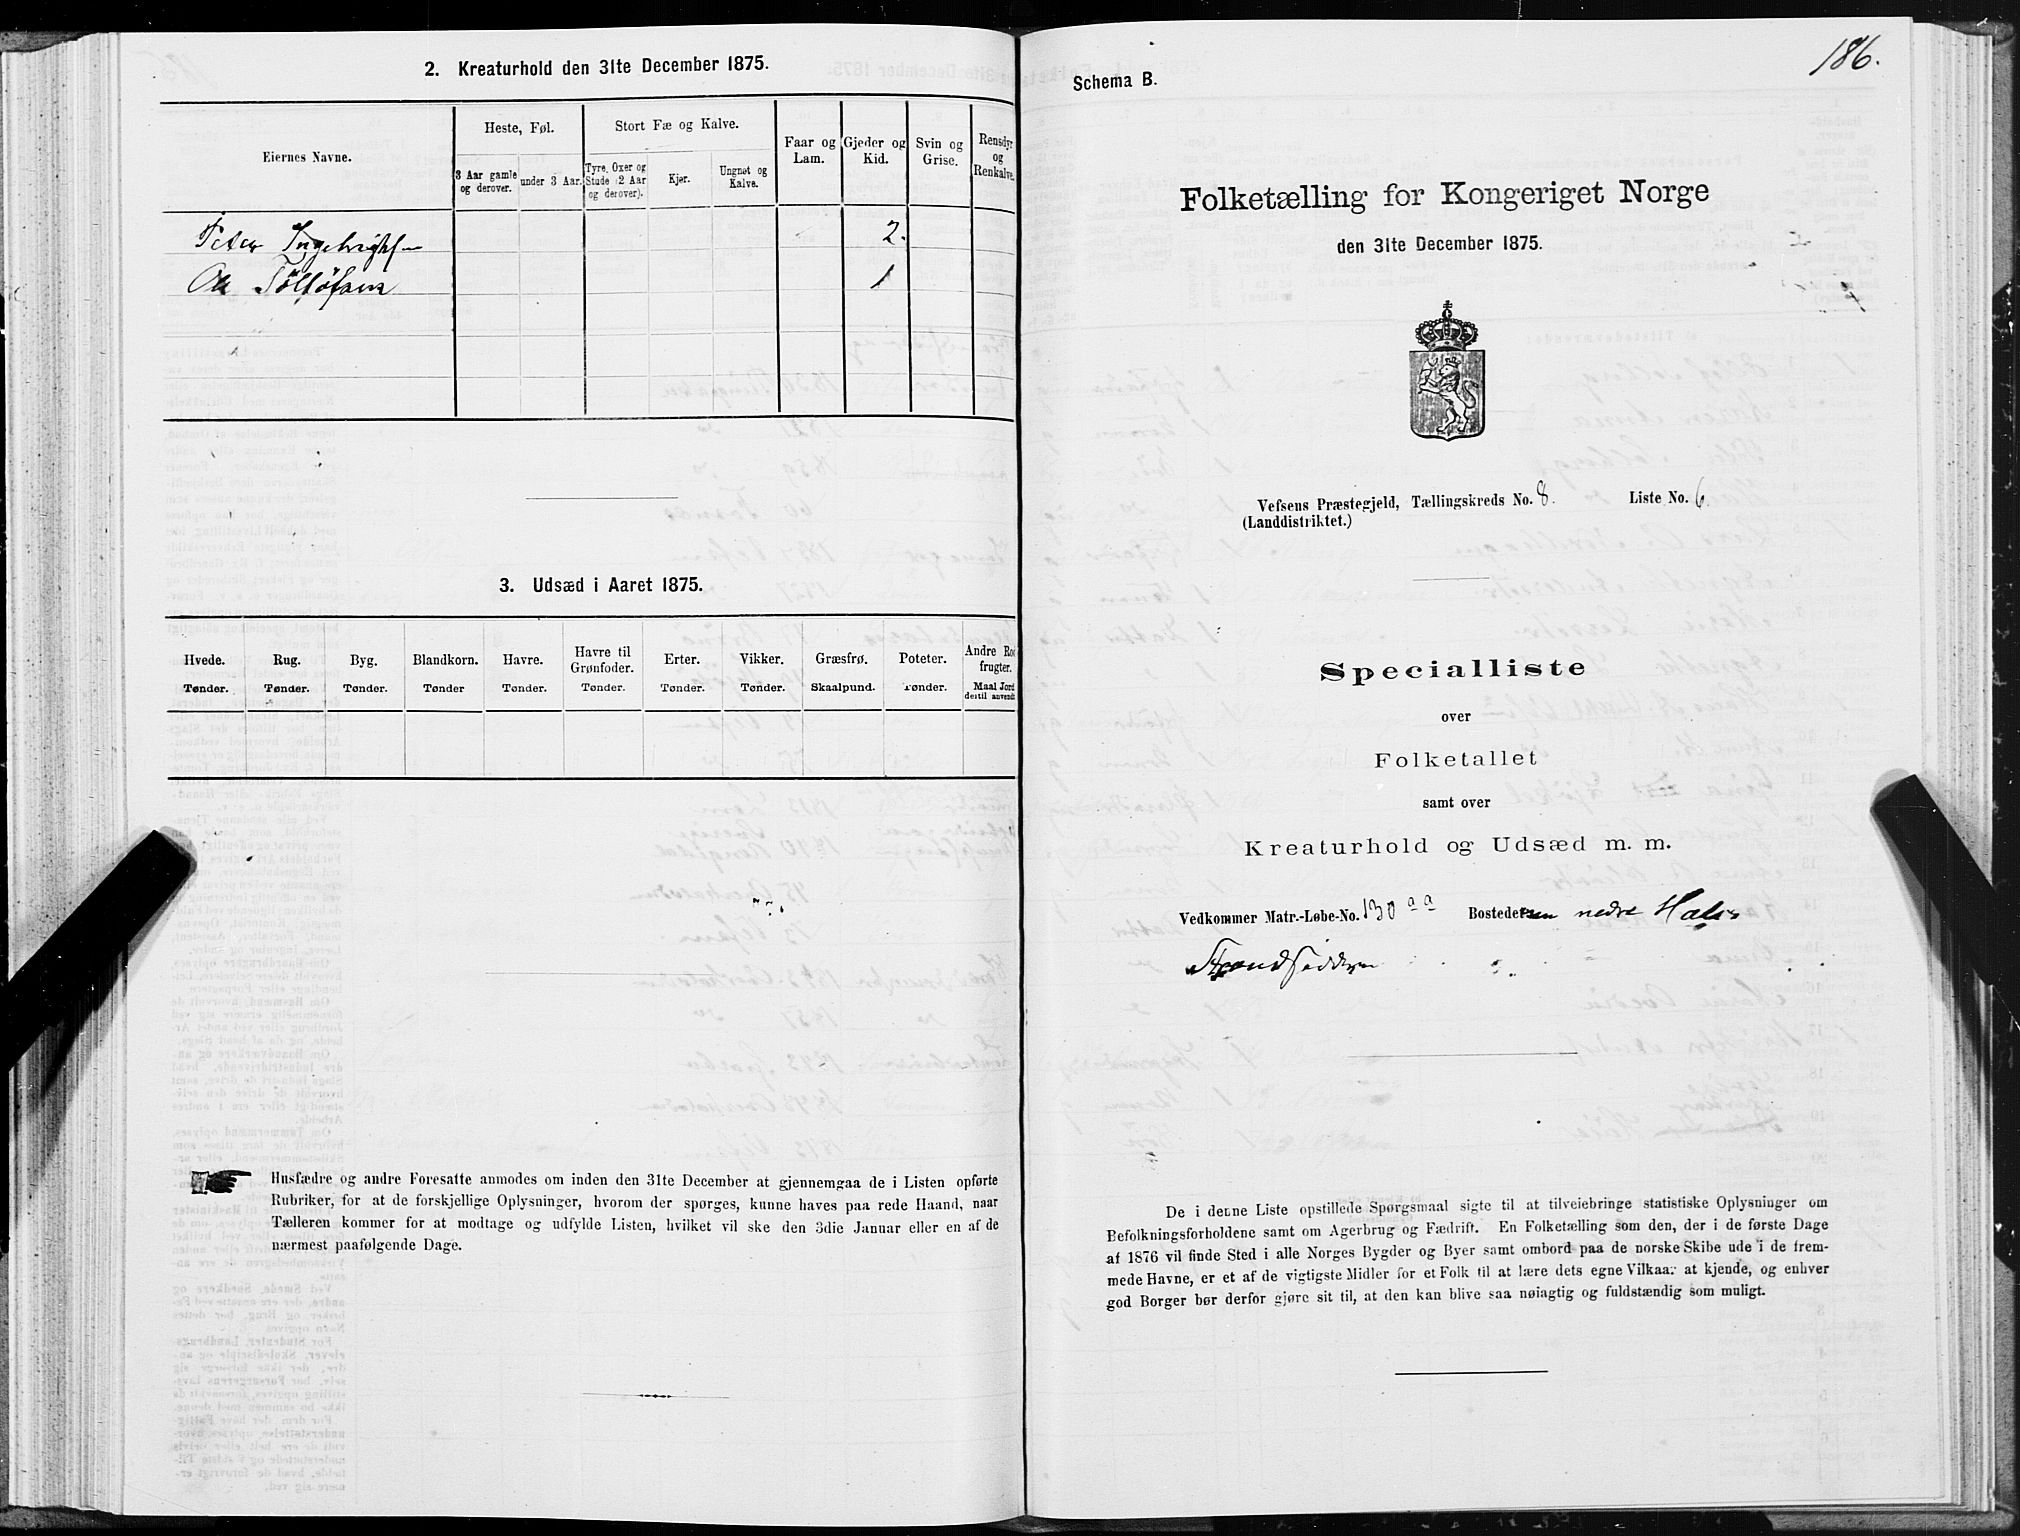 2. Kreaturhold den 31te December 1875.
Eiernes Navne.
Heste, Føl.
Stort Fæ og Kalve.
Faar og Lam.
Gjeder og Kid.
Svin og Grise.
Rensdyr og Renkalve.
3 Aar gamle og derover.
under 3 Aar.
Tyre, Oxer og Stude (2 Aar og derover).
Kjør.
Ungnøt og Kalve.
Peter Ingebrigtsen 2.
Ole Tollöfsen 1
3. Udsæd i Aaret 1875.
Hvede. Rug. Byg. Blandkorn. Havre. Havre til Grønfoder. Erter. Vikker. Græsfrø. Poteter. Andre Rodfrugter.
Tønder. Tønder. Tønder. Tønder Tønder. Tønder. Tønder. Tønder. Skaalpund. Tønder. Maal Jord dertil anvendt
Husfædre og andre Foresatte anmodes om inden den 31te December at gjennemgaa de i Listen opførte
Rubriker, for at de forskjellige Oplysninger, hvorom der spørges, kunne haves paa rede Haand, naar
Tælleren kommer for at modtage og udfylde Listen, hvilket vil ske den 3die Januar eller en af de
nærmest paafølgende Dage.
186.
Schema B.
Folketælling for Kongeriget Norge
den 31te December 1875.
Vefsens Præstegjeld, Tællingskreds No. 8. Liste No. 6
(Landdistriktet.)
Specialliste
over
Folketallet
samt over
Kreaturhold og Udsæd m. m.
Vedkommer Matr.-Løbe-No. 130 a a Bostedet nedre Hals
Strandsidden
De i denne Liste opstillede Spørgsmaal sigte til at tilveiebringe statistiske Oplysninger om
Befolkningsforholdene samt om Agerbrug og Fædrift. En Folketælling som den, der i de første Dage
af 1876 vil finde Sted i alle Norges Bygder og Byer samt ombord paa de norske Skibe ude i de frem-
mede Havne, er et af de vigtigste Midler for et Folk til at lære dets egne Vilkaar at kjende, og enhver
god Borger bør derfor gjøre sit til, at den kan blive saa nøiagtig og fuldstændig som muligt.